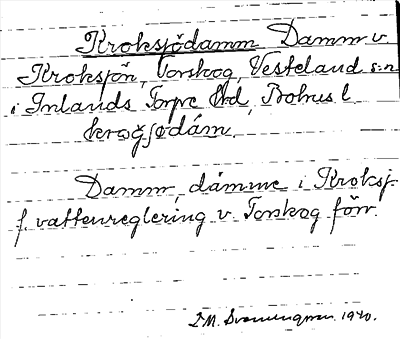 Kroksjödamm Damm v.
Kroksjön, Torskog, Västerland s:n
i Inlands Torpe hd, Bohus l.
krɷǧʃødám.
Damm, dämme i Kroksj.
f. vattenreglering v. Torskog förr.
1940.